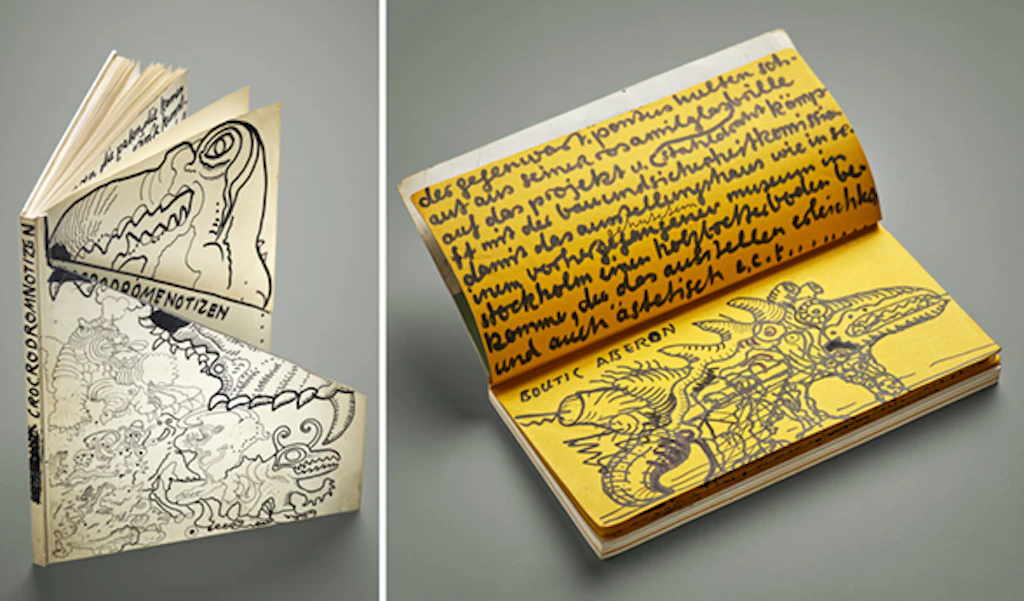 CROCRODROMNOTIZEN
DROMENOTIZEN
der gegenwart, pontus hulten sch-
aut aus seiner rosamilglasbrille
auf das projekt u. stahldraht kämp-
ft mit der bau und sicherheitskomission
damit das ausstellungshaus wie in se-
inem museum in
stockholm einen holzbretterboden be-
komme, der das ausstellen erleichter
und auch ästetisch e.c.t.........
BOUTIC ABERON